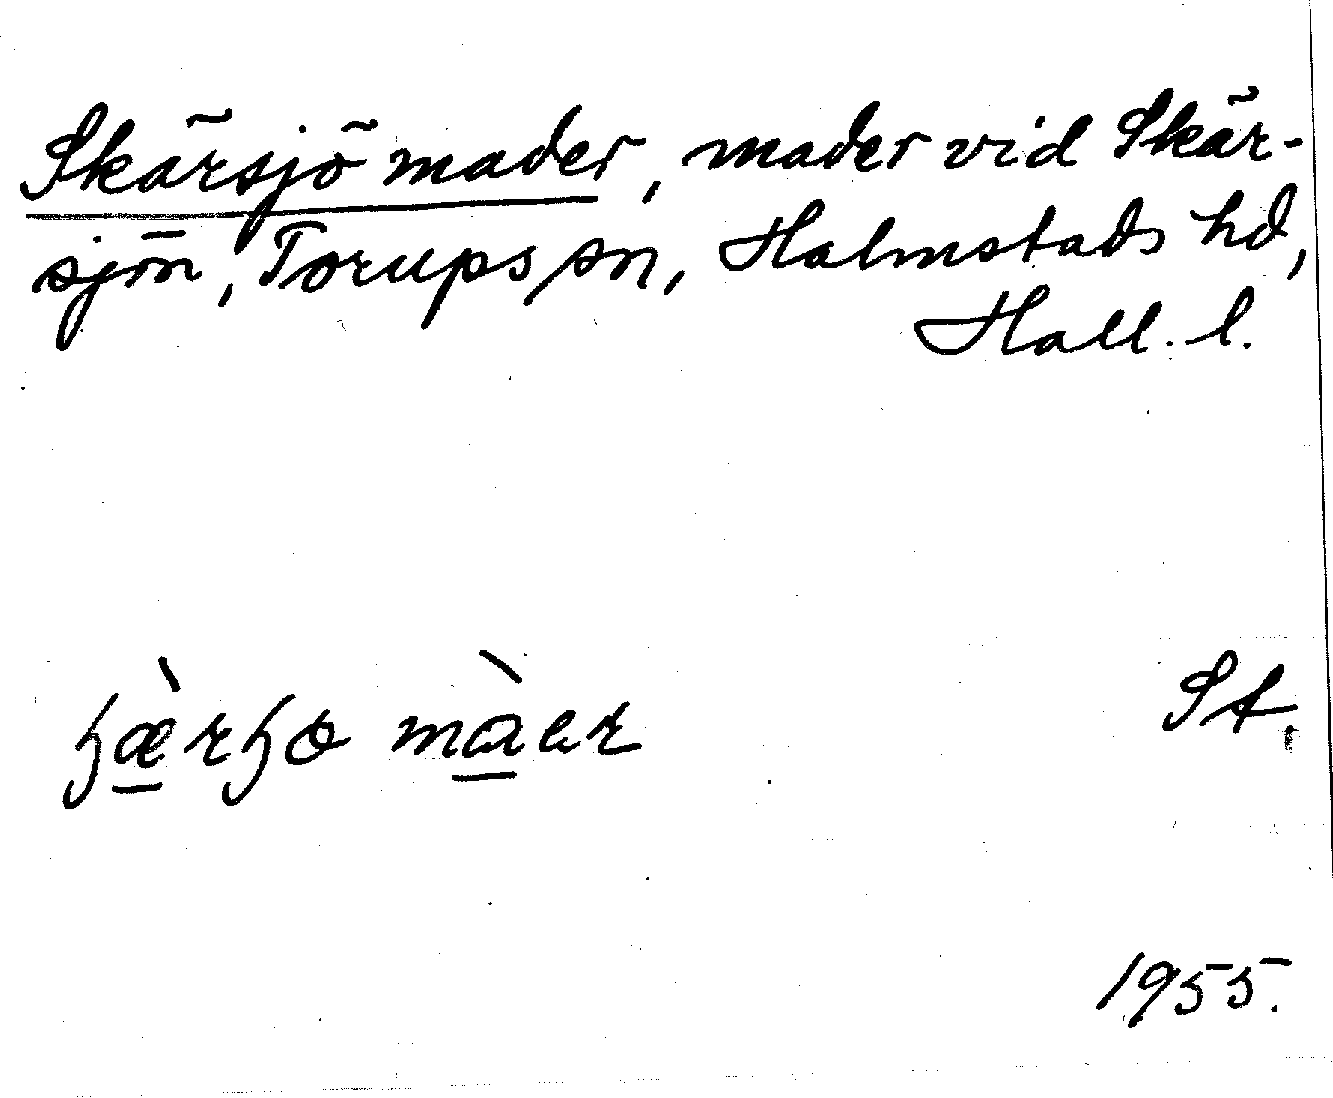 Skärsjö mader, mader vid Skär-
sjön, Torups sn, Halmstads hd,
Hall. l.
St.
1955.